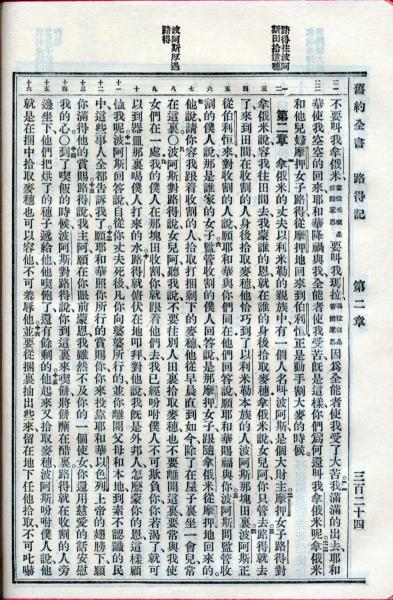 舊約全書　路得記　第二章　三百二十四
路得往波阿
斯田拾遺穗
波阿斯厚遇
路得
不要叫我拿俄米拿俄米就是甜的意思要叫我瑪拉瑪拉就是苦的意思因爲全能者使我受了大苦我滿滿的出去耶和
華使我空空的回來耶和華降禍與我全能者使我受苦既是這樣你們爲何還叫我拿俄米呢拿俄米
和他兒婦摩押女子路得從摩押地回來到伯利恒正是動手割大麥的時候
一 第二章　拿俄米的丈夫以利米勒的親族中有一個人名叫波阿斯是個大財主摩押女子路得對
拿俄米說容我往田間去我蒙誰的恩就在誰的身後拾取麥穗拿俄米說女兒阿你只管去路得就去
三 了來到田間在收割的人身後拾取麥穗他恰巧到了以利米勒本族的人波阿斯那塊田裏波阿斯正
四 從伯利恒來對收割的人說願耶和華與你們同在他們回答說願耶和華賜福與你波阿斯問監管收
五 割的僕人說那是誰家的女子監管收割的僕人回答說是那摩押女子跟隨拿俄米從摩押地回來的
七 他說請你容我跟着收割的人拾取打捆剩下的麥穗他從早晨直到如今除了在屋子裏坐一會兒常
八 在這裏○波阿斯對路得說女兒阿聽我說不要往別人田裏拾取麥穗也不要離開這裏要常與我使
九 女們在一處我的僕人在那塊田收割你就跟着他們去我已經吩咐僕人不可欺負你你若渴了就可
十 以到器皿那裏喝僕人打來的水路得就俯伏在地叩拜對他說我既是外邦人怎麼蒙你的恩這樣顧
十一 恤我呢波阿斯回答說自從你丈夫死後凡你向婆婆所行的並你離開父母和本地到素不認識的民
十二 中這些事人全都告訴我了願耶和華照你所行的賞賜你你來投靠耶和華以色列上帝的翅膀下願
十三 你滿得他的賞賜路得說我主阿願在你眼前蒙恩我雖然不及你的一個使女你還用慈愛的話安慰
十四 我的心○到了喫飯的時候波阿斯對路得說你到這裏來喫餅將餅蘸在醋裏路得就在收割的人旁
十五 邊坐下他們把烘了的穗子遞給他他喫飽了還有餘剩的他起來又拾取麥穗波阿斯吩咐僕人說他
十六 就是在捆中拾取麥穗也可以容他不可羞辱他並要從捆裏抽出些來留在地下任他拾取不可叱嚇